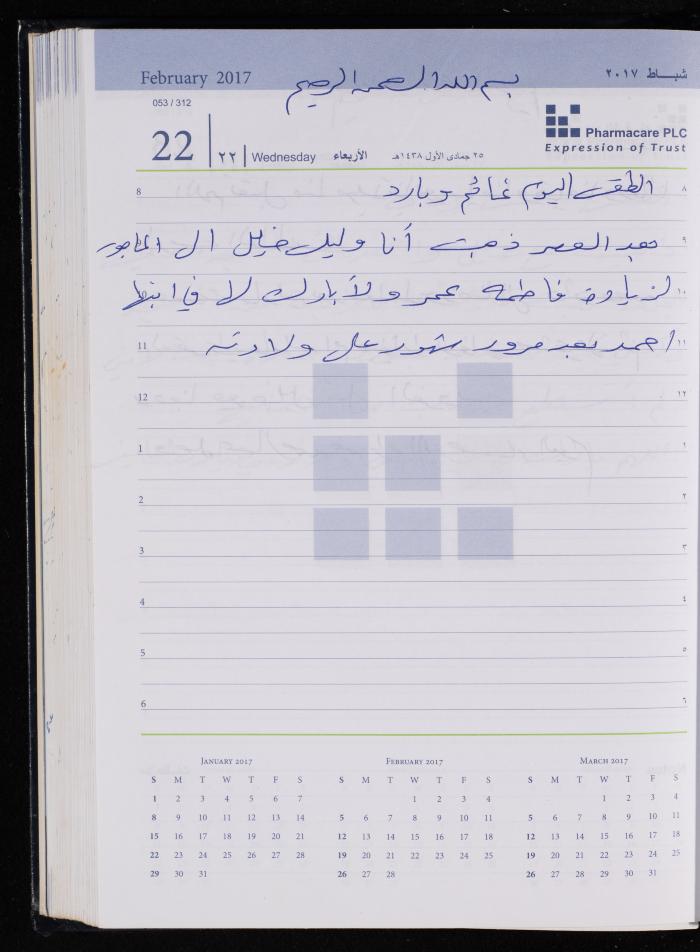 February 2017
بسم الله الرحمن الرحيم
شباط ٢٠١٧
053 / 312
22
٢٢
Wednesday
الأربعاء
٢٥ جمادى الأول ١٤٣٨هـ
Pharmacare PLC
Expression of Trust
8 الطقس اليوم غائم وبارد ٨
بعد العصر ذهبت أنا و خليل ال ٩
10 لزيارة فاطمة عمر ولأبارك لا في ابنها ١٠
11 احمد بعد مرور شهور على ولادته ١١
12 ١٢
1 ١
2 ٢
3 ٣
4 ٤
5 ٥
6 ٦
JANUARY 2017
S M T W T F S
1 2 3 4 5 6 7
8 9 10 11 12 13 14
15 16 17 18 19 20 21
22 23 24 25 26 27 28
29 30 31
FEBRUARY 2017
S M T W T F S
1 2 3 4
5 6 7 8 9 10 11
12 13 14 15 16 17 18
19 20 21 22 23 24 25
26 27 28
MARCH 2017
S M T W T F S
1 2 3 4
5 6 7 8 9 10 11
12 13 14 15 16 17 18
19 20 21 22 23 24 25
26 27 28 29 30 31